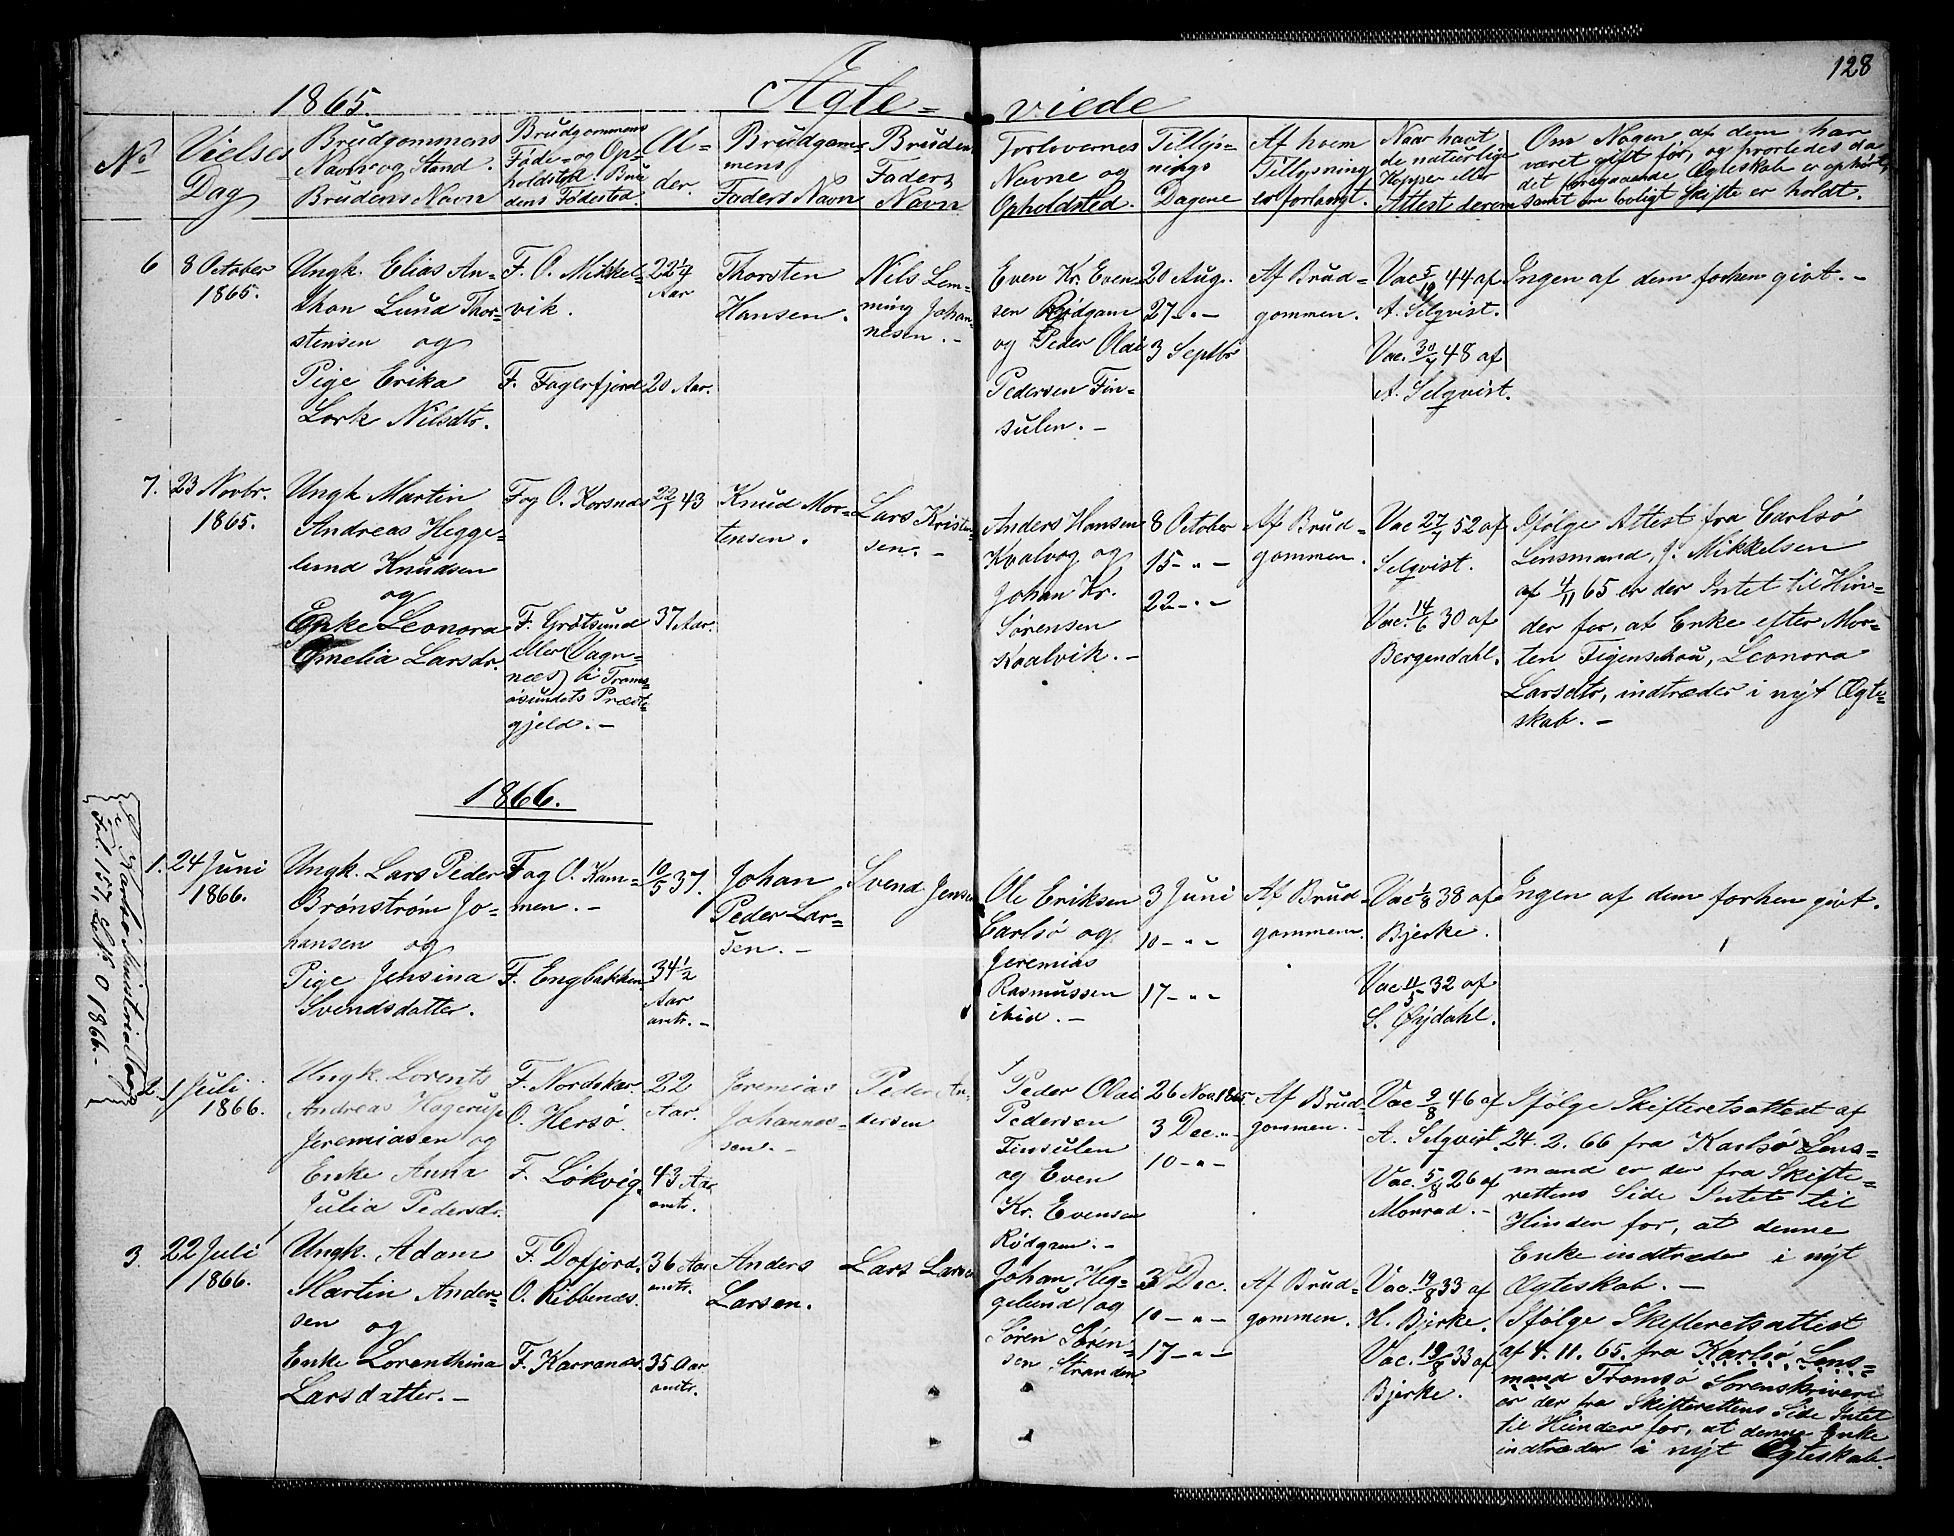 128
1865. Ægte= viede
No
Vielses
Dag
Brudgommens
Navn og Stand.
Brudens Navn
Brudgommens
Føde- og Op-
holdsted. Bru
dens Fødested.
Al-
der.
Brudgom-
mens
Faders Navn
Brudens
Faders
Navn
Forlovernes
Navne og
Opholdsted.
Tillys-
nings
Dagene
Af hvem
Tillysning
er forlangt.
Naar havt
de naturlige
Kopper eller
Attest derom
Om Nogen af dem har
været gift før, og hvorledes da
det foregaaende Ægteskab er ophørt,
samt om lovligt Skifte er holdt.
6
8 October
1865.
Ungk. Elias An-
thon Lund Thor=
stensen og
Pige Erika
Lark Nilsdtr.
F. O. Mikkel-
vik.
F. Fagerfjord
22 1/4
Aar
20 Aar.
Thorsten
Hansen.
Nils Lem-
ming Johan-
nesen. -
Even Kr. Even
sen Rødgam
og Peder Olai
Pedersen Fin-
sulen. -
20 Aug.
27 - " -
3 Septbr
Af Brud-
gommen.
Vac 5/19 44 af
A. Selqvist.
Vac. 30/7 48 af
A. Selqvist.
Ingen af dem forhen givt. -
7.
23 Novbr.
1865.
Ungk Martin
Andreas Hegge-
lund Knudsen
og
Enke Leonora
Emelia Larsdr.
F og O. Korsnes
F. Grøtsund
eller (Vagn-
næs) i Troms-
øsundets Præste-
gjeld. -
22/1 43
37 Aar.
Knud Mor-
tensen.
Lars Kristen-
sen. -
Anders Hansen
Kvalvog og
Johan Kr.
Sørensen
Kvalvik. -
8 October
15 - " -
22 - " -
Af Brud-
gommen.
Vac 27/7 52 af
Selqvist.
Vac. 14/6 30 af
Bergendahl.
Ifølge Attest fra Carlsø
Lensmand, J. Mikkelsen
af 4/11 65 er der Intet til Hin-
der for, at Enke efter Mor-
ten Figenschou, Leonora
Larsdtr, indtræder i nyt Ægte-
skab. -
1866.
1.
24 Juni
1866.
Ungk. Lars Peder
Brønstrøm Jo-
hansen og
Pige Jensina
Svendsdatter.
F og O. Kam-
men. -
F. Engbakken.
10/5 37.
34 1/2
Aar
omtr. -
Johan
Peder Lar-
sen. -
Svend Jensen
Ole Eriksen
Carlsø og
Jeremias
Rasmussen
ibid. -
3 Juni
10 - " -
17 - " -
Af Brud-
gommen.
Vac 1/8 38 af
Bjerke.
Vac 11/5 32 af
S. Øydahl.
Ingen af dem forhen givt.
2.
1 Juli
1866.
Ungk. Lorents
Andreas Hagerup
Jeremiasen og
Enke Anna
Julia Pedersdr.
F. Nordskar
O. Hersø.
F. Løkvig.
22
Aar.
43 Aar
omtr.
Jeremias
Johannes-
sen. -
Peder An-
dersen
Peder Olai
Pedersen
Finsulen
og Even
Kr. Evensen
Rødgam. -
26 Nov. 1865
3 Dec. "
10 - " -
Af Brud-
gommen. -
Vac 9/8 46 af
A. Selqvist.
Vac. 5/8 26 af
Monrad. -
Ifølge Skifteretsattest af
24. 2. 66 fra Karlsø Lens-
mand er der fra Skifte-
rettens Side Intet til
Hinder for, at denne
Enke indtræder i nyt
Ægteskab. -
3.
22 Juli
1866.
Ungk. Adam
Martin Ander-
sen og
Enke Lorenthina
Larsdatter. -
F. Dofjord.
O. Ribbenæs.
F. Karranæs.
36 Aar
omtr.
35 Aar
omtr.
Anders
Larsen.
Lars Larsen
Johan Heg-
gelund og
Søren Søren-
sen Stranden
3 Dec.
10 - " -
17 - " -
Af Brud-
gommen.
Vac. 19/8 33 af
H. Bjerke.
Vac. 19/8 33 af
Bjerke.
Ifølge Skifteretsattest
af 4. 11. 65. fra Karlsø Lens-
mand Tromsø Sorenskriveri
er der fra Skifterettens Side Intet
til Hinder for, at denne Enke
indtræder i nyt Ægteskab.
Karlsø Ministerialbog
Fol 157, 0 1866. -